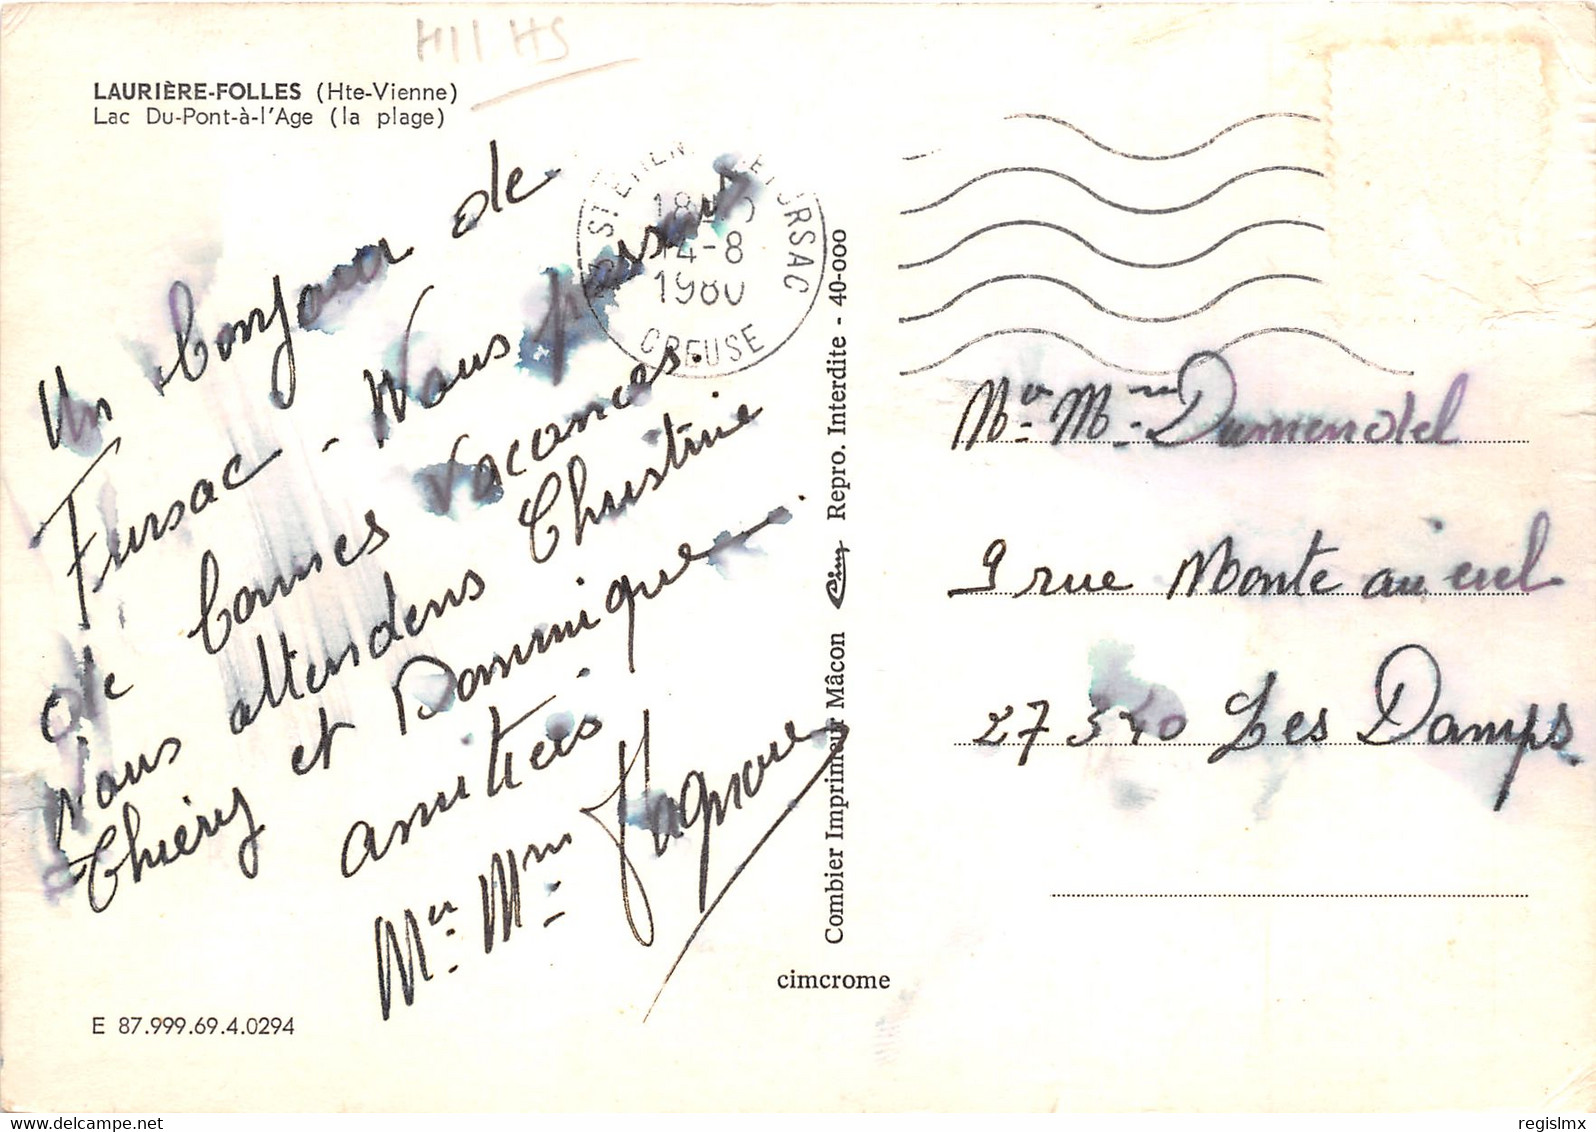 H11 HS
LAURIÈRE-FOLLES (Hte-Vienne)
Lac Du-Pont-à-l'Age (la plage)
Un bonjour de
Fursac - Nous passons
de bonnes vacances.
Nous attendons Christine
Thiéry et Dominique
amitiés
Mr Mme
ST ETIEN FURSAC
18
14-8
1980
CREUSE
Combier Imprimeur Mâcon Cim Repro. Interdite - 40-000
cimcrome
E 87.999.69.4.0294
Mr Mme Dumendel
9 rue Monte au ciel
27340 Les Damps
regislmx